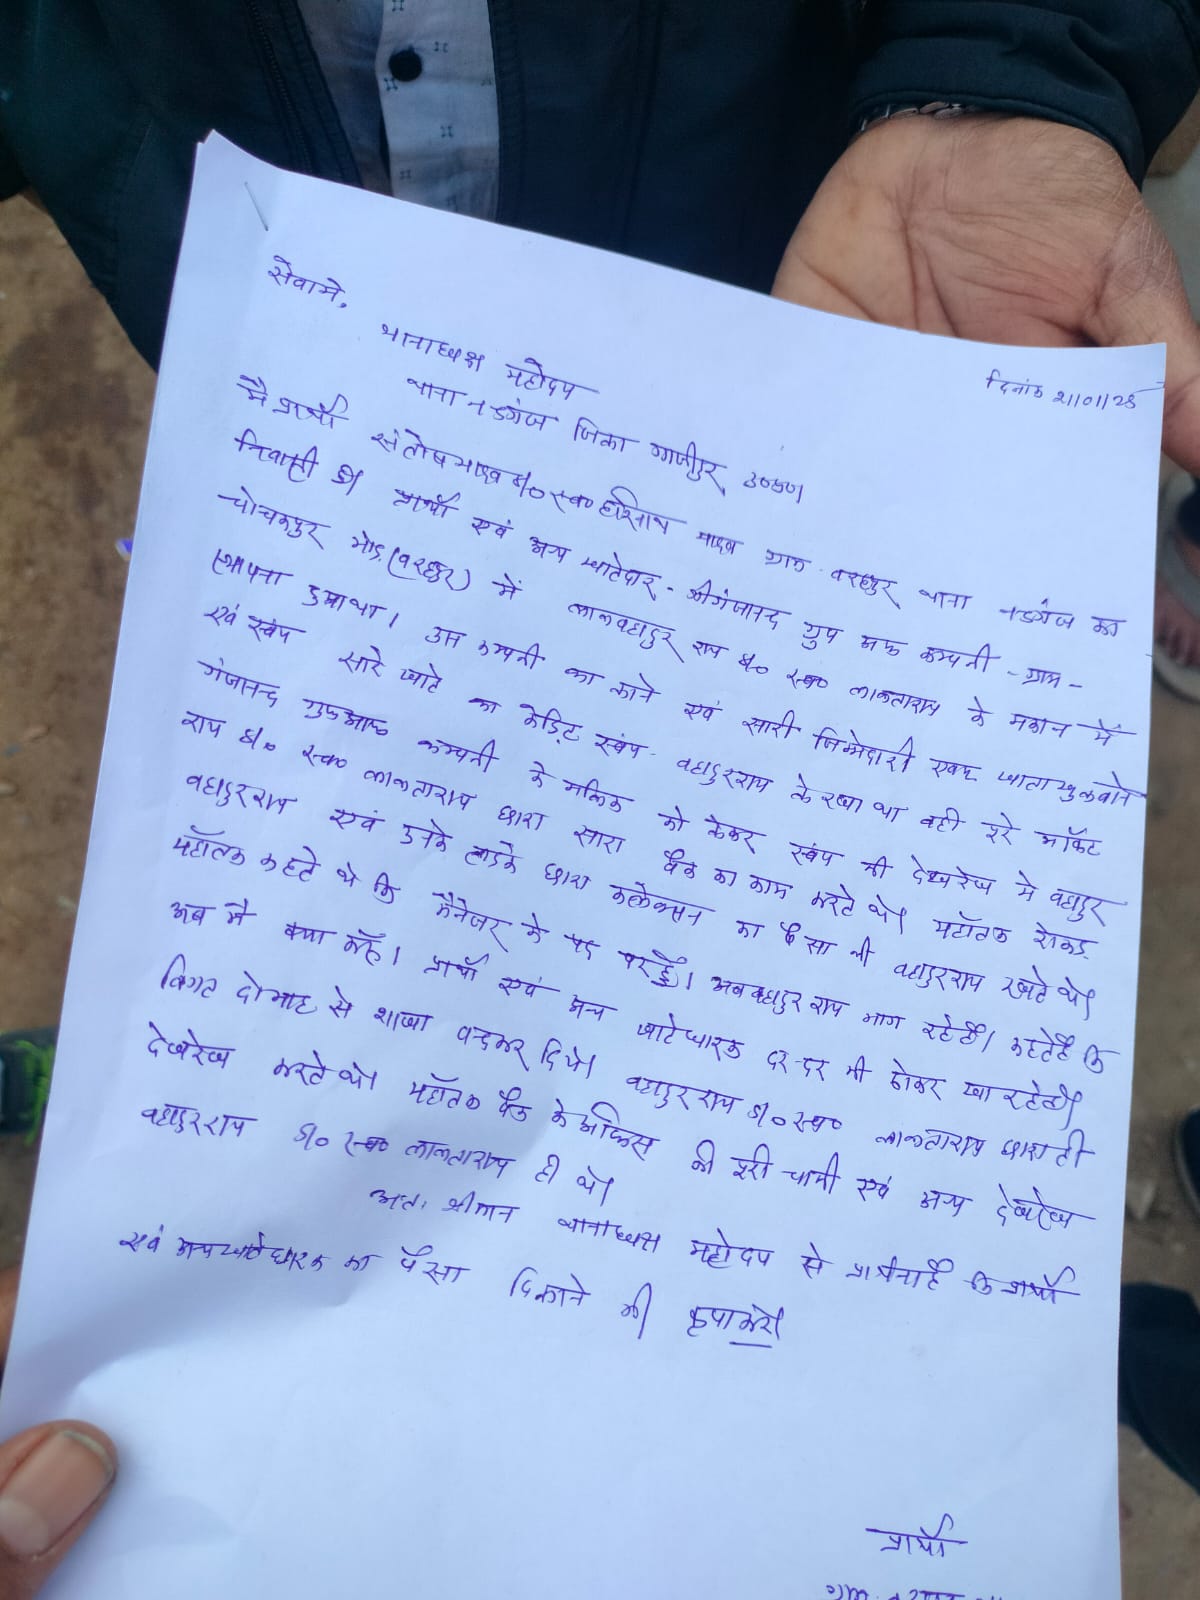 सेवामे,
थानाध्यक्ष महोदय
दिनांक 21/01/25
थाना नन्दगंज जिला गाजीपुर उ०प्र०
मै प्रार्थी संतोष यादव s/० स्व० हरिनाथ यादव ग्राम बरहपुर थाना नन्दगंज का
निवासी हूँ प्रार्थी एवं अन्य खातेदार - श्री गंजानन्द ग्रुप आफ कम्पनी - ग्राम -
चोचकपुर मोड़ (बरहपुर) में लालबहादुर राय s/० स्व० लालताराय के मकान में
स्थापना हुआ था। उस कम्पनी का लाने एवं सारी जिम्मेदारी एवम खाता खुलवाने
एवं स्वंय सारे खाते का क्रेडिट स्वंय बहादुर राय ले रखा था वही पूरे मार्केट
गंजानन्द ग्रुप आफ कम्पनी के मालिक को लेकर स्वंय की देखरेख मे बहादुर
राय s/० स्व० लालताराय द्वारा सारा बैंक का काम करते थे। यहाँतक रोकड़
बहादुर राय एवं उनके लड़के द्वारा कलेक्सन का पैसा भी बहादुर राय रखते थे।
यहाँतक कहते थे कि मैनेजर के पद पर हूँ। अब बहादुर राय भाग रहे हैं। कहते है कि
अब मै क्या करूँ। प्रार्थी एवं अन्य खाते धारक दर-दर की ठोकर खा रहे हैं।
विगत दो माह से शाखा बन्द कर दिये। बहादुर राय s/० स्व० लालताराय द्वारा ही
देखरेख करते थे। यहाँतक बैंक के आफिस की पूरी चाभी एवं अन्य देखरेख
बहादुर राय s/० स्व० लालताराय ही थे।
अतः श्रीमान थानाध्यक्ष महोदय से प्रार्थना है कि प्रार्थी
एवं अन्य खाते धारक का पैसा दिलाने की कृपा करे।
प्रार्थी